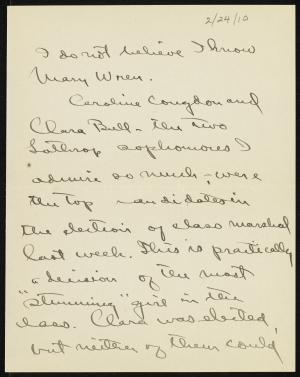 2/24/10
I do not believe I know
Mary Wren.
Caroline Congdon and
Clara Bull - the two
Lathrop sophomores I
admire so much, - were
the top candidates in
the election of class marshal
last week. This is practically
a decision of the most
"stunning" girl in the
class. Clara was elected,
but neither of them could